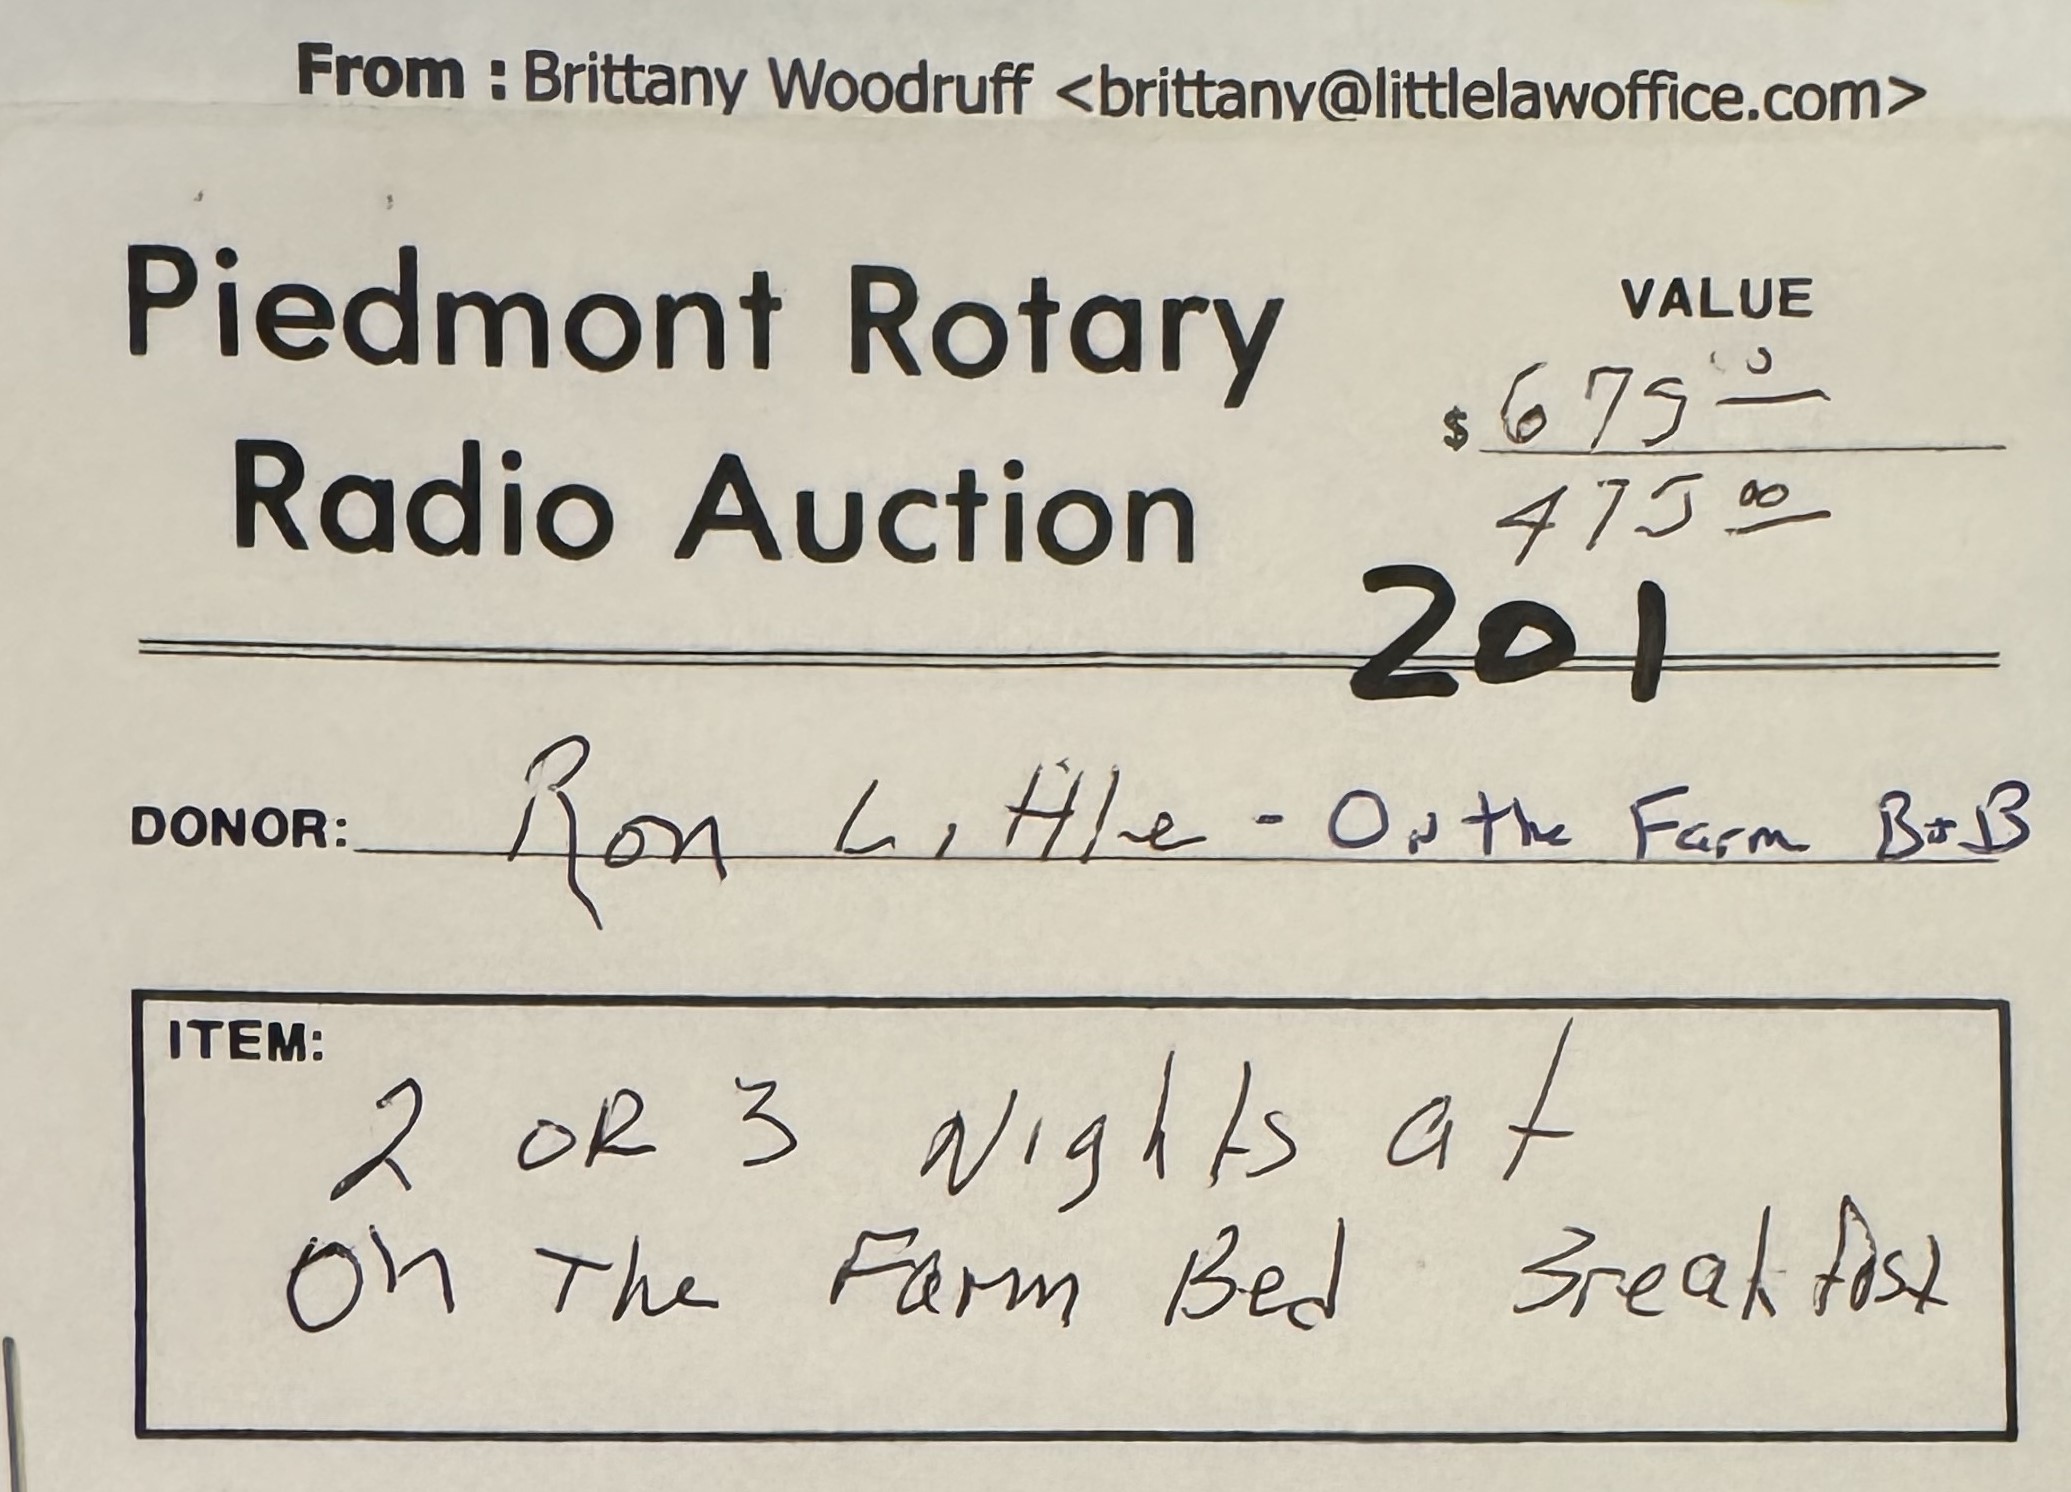 From : Brittany Woodruff <brittany@littlelawoffice.com>
Piedmont Rotary
Radio Auction
VALUE
$ 675 00
475 00
201
DONOR: Ron Little - On the Farm B+B
ITEM:
2 OR 3 Nights at
On The Farm Bed Breakfast